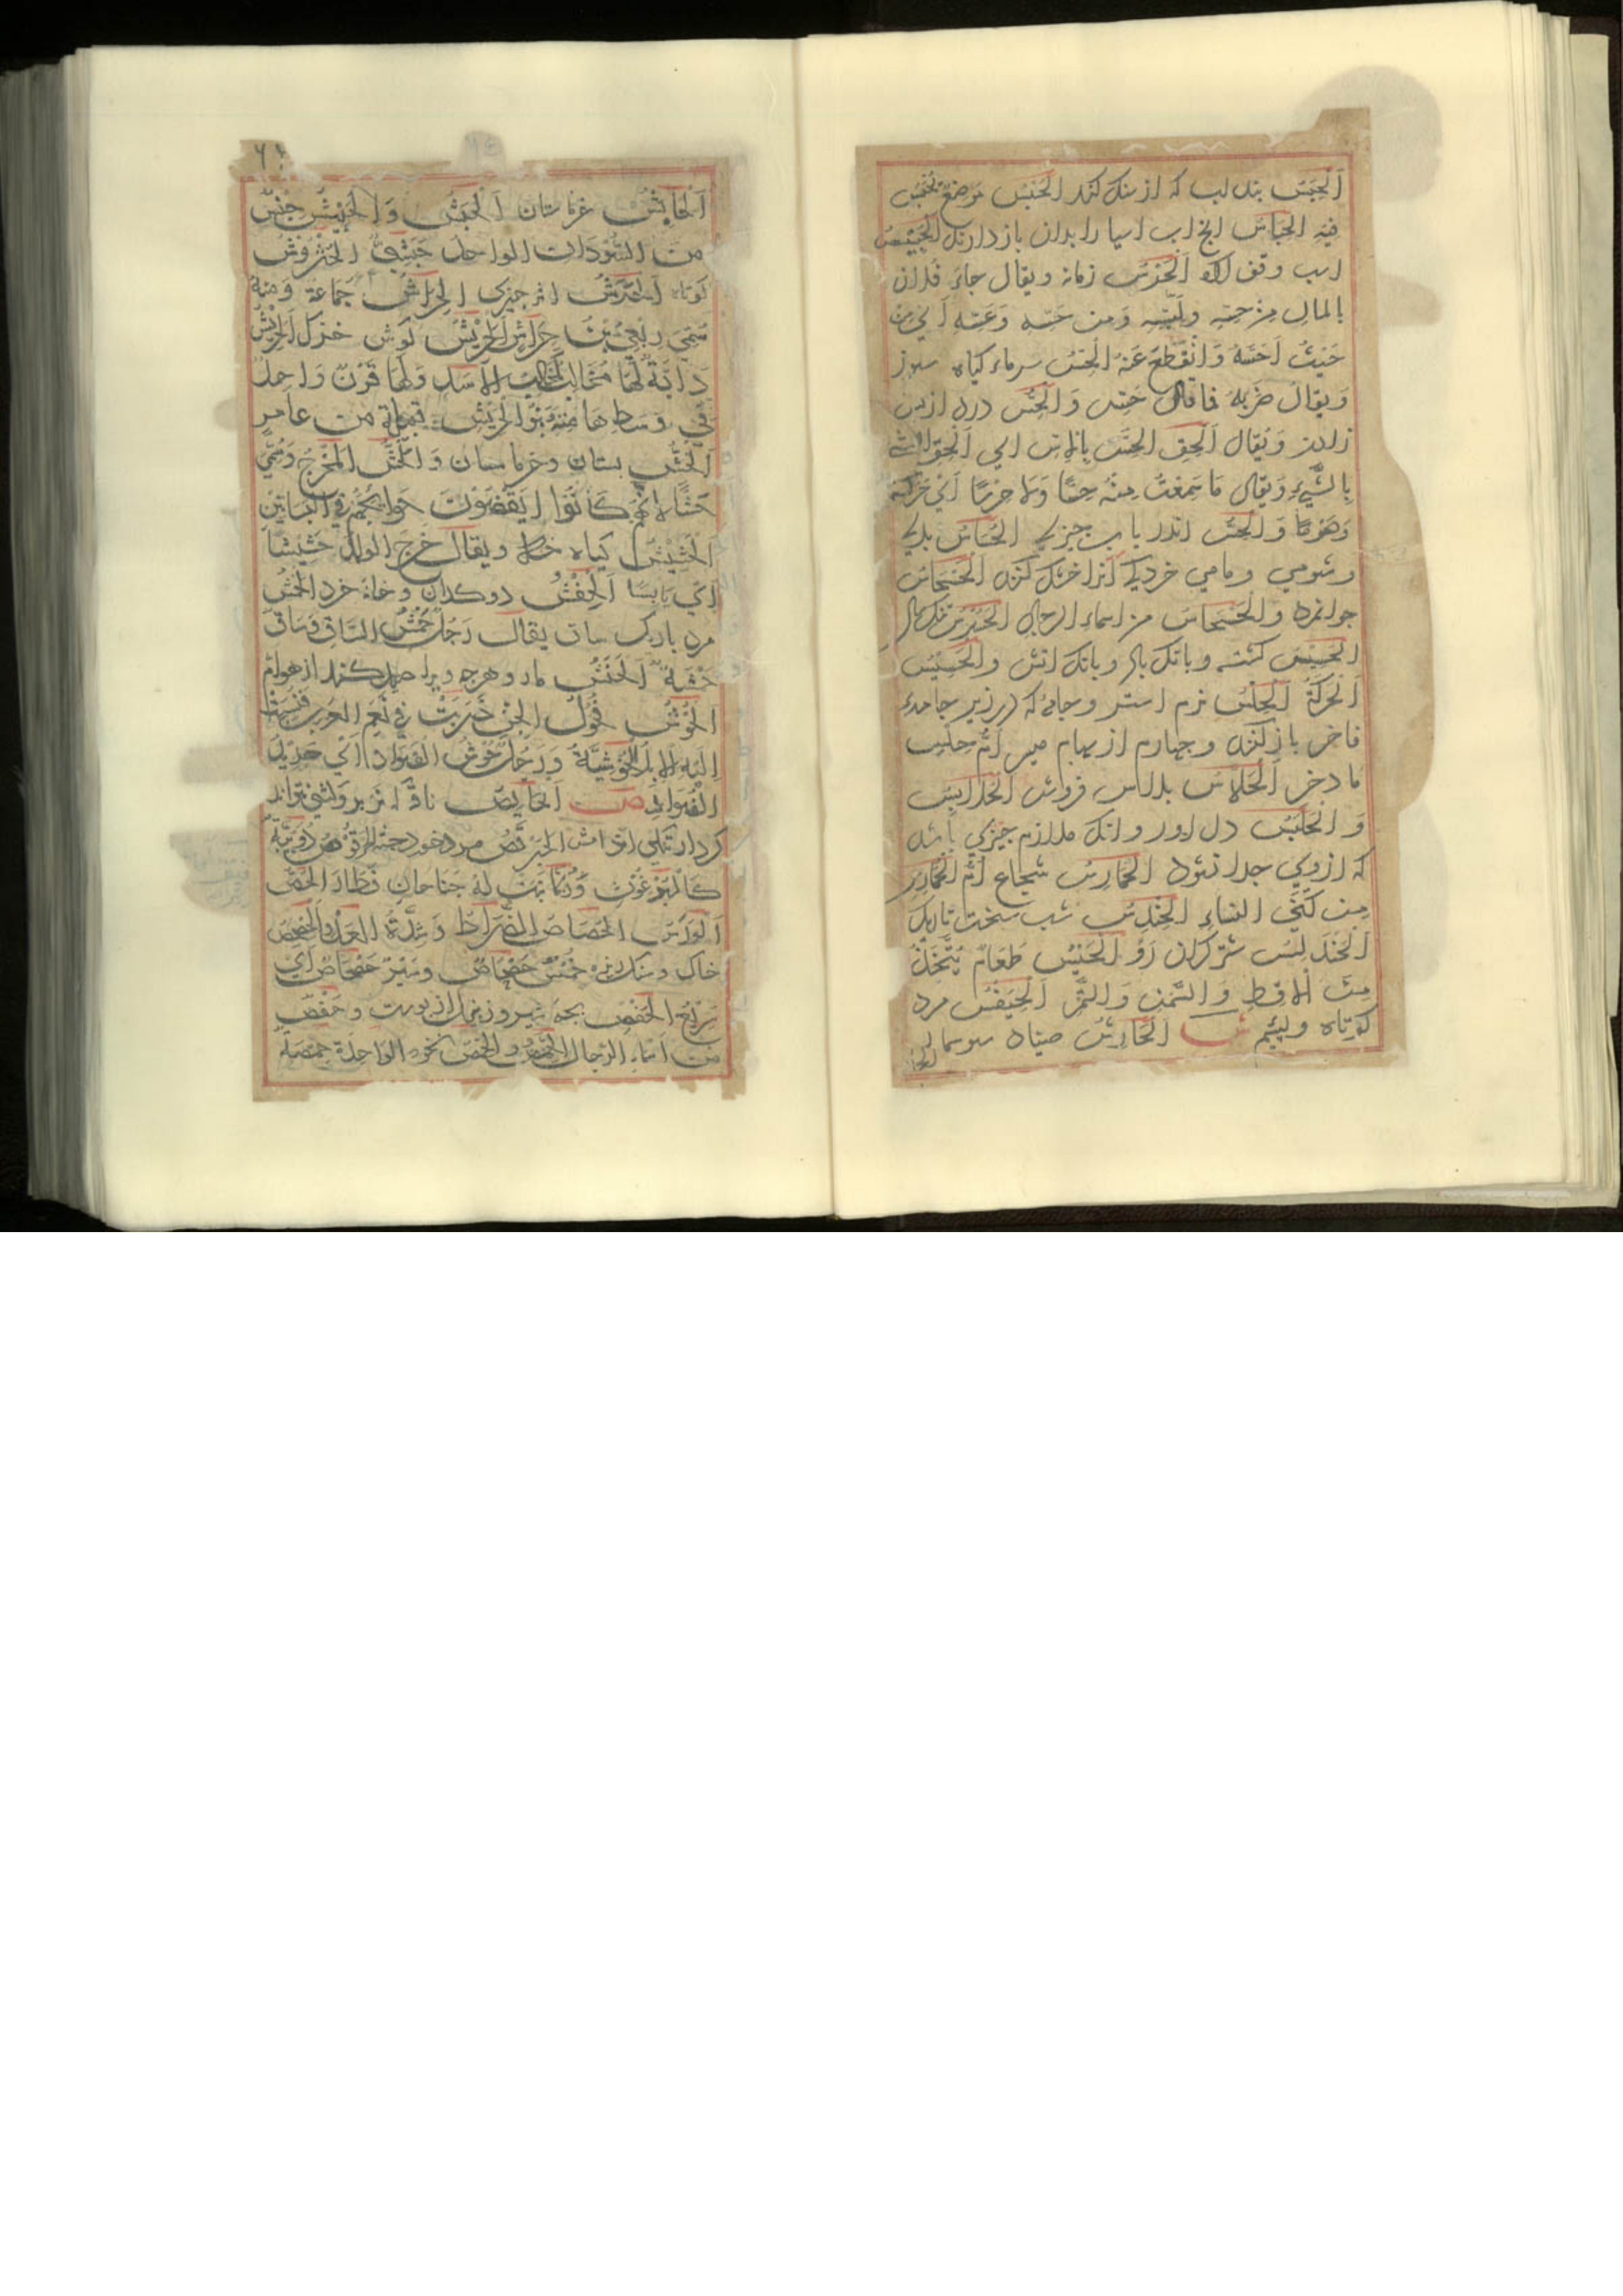 اَلْحِبْسُ بند اب که از سنک کنند المَحْبِسُ مَوْضِعٌ يُحْبَسُ
فيه الحَبَّاسُ انج اب اسیا را بدان باز دارند الحَبِيْسُ
اسب وقف کرده اَلْحَرْسُ زمانه ويقال جاءَ فلان
بالمالِ مِنْ حِسِّهِ وَبَسِّهِ وَمِن حَسِّه وَعَسِّهِ اَيْ مِنْ
حَيْثُ اَحَسَّهُ وَانْقَطَعَ عَنْهُ الحِسُّ سرماء کیاه سوز
وَيقالُ ضَرَبَهُ فما قال حَسِّ وَالْحِسُّ درد از پس
زادن وَيُقَال اَلْحِق الحِسَّ بالاِسّ اي اَلْحِق الشئَ
بالشَّيْءِ وَيقالُ مَا سَمِعْتُ مِنْهُ حِسًّا وَلا جِرْسًا اَيْ حَرَكَةً
وَهُوَ وَالْحِسُّ اندر یاب جیزی الحُسَاسُ بدی
وشومي وماهي خرد که انرا خشک کنند الْحَسْحَاسُ
جوانمرد والحَسْحَاسُ من اسماءِ الرجالِ
الحَسِيْسُ کشته وبانک وبانک اتش والحَسِيْسُ
اَلْحَرَكَةُ اَلْحِلْسُ نرم استر وجامهٔ که در زیر جامهاء
فاخر باز کنند وجهارم از سهام میسر اُمُّ حِلْسٍ
مادخر اَلْحَلَّاسُ بلاس فروش الحُلَابِسُ
وَالحَلْبَسُ دلاور وانک ملازم جیزي باشد
که ازوي جدا نشود الحُمَارِسُ شجاع اُمُّ الحُمَارِسِ
مِن كُنَى النساءِ الحِنْدِسُ شب سخت تاریک
اَلْحَنْدَلِسُ شتر کران رَوْ الحَيْسُ طَعَامٌ يُتَّخَذُ
مِنَ الاَقِطِ وَالسَّمْنِ وَالتَّمْرِ اَلْحِيَفْسُ مرد
کوتاه ولییم ش اَلْحَارِشُ صیاد سوسمار
اَلْحَايِشُ خرماستان اَلْحَبَشُ وَالحَبِيْشُ جِنْسٌ
مِنَ السُّوْدَانِ الواحد حَبَشِيٌّ الحَتْرُوشُ
کوتاه اَلْحَرْشُ اثر جیزی الحِرَاشُ جَمَاعة وَمنهُ
سُمِّيَ رِبْعِيُّ بْنُ حِرَاشٍ الْحَرِيْشُ کوش خزک اَلْحَرِيْشُ
دَابَّةٌ لَهَا مَخَالِبُ كَمَخَالِبِ الاَسَدِ وَلَهَا قَرْنٌ وَاحِدٌ
فِي وَسَطِ هَامَتِهَا بَنُو الْحَرِيْشِ قبيلة من عامرٍ
اَلْحَشُّ بستان وخرماستان وَالْحُشُّ المَخْرَجُ وَسُمِّيَ
حَشًّا لاَنَّهُمْ كَانُوا يَقْضُوْنَ حَوَائِجَهُمْ فِي البَسَاتِيْنِ
اَلْحَشِيْشُ کیاه خشک ويقال خَرَجَ الولد حَشِيْشًا
اَيْ يَابِسًا اَلْحِفْشُ دوکدان وخانهٔ خرد الحَمْشُ
مرد باریک ساق يقال رَجُلٌ حَمْشُ السَّاقِ وَسَاقٌ
حَمْشَةٌ اَلْحَنَشُ مار وهرجه ویرا صید کنند از هوام
الحُوْشُ فُحُوْلُ الجِنِّ ضَرَبَتْ فِي نَعَمِ العَرَبِ فَنُسِبَتْ
اِلَيْهِ الاِبِلُ الحُوْشِيَّةُ وَرَجُلٌ حُوْشُ الفُؤَادِ اَيْ حَدِيْدُ
الفُؤَادِ ص اَلحَايِصُ ناقهٔ که نر برو کشنی نتواند
کردن تنکی اندامش الحَرْقُصُ مرد خورد جثه الحُرْقُوْصُ دُوَيْبَةٌ
كَالبُرْغُوْثِ وَرُبَّمَا نَبَتَ لَهُ جَنَاحَانِ فَطَارَ الحُصُّ
اَلْوَرْسُ الحُصَاصُ الضُّرَاطُ وَشِدَّةُ العَدْوِ اَلْحِصْحِصُ
خاک وسنک ریزه خِمْسٌ حَصْحَاصٌ وَسَيْرٌ حَصْحَاصٌ اَيْ
سَرِيْعٌ الحَفْصُ بجهٔ شیر وزنبیل از بوست وحَفْصٌ
من اسماءِ الرجال الحِمِّصُ والحِمَّصُ نخود الواحدة حِمَّصَةٌ